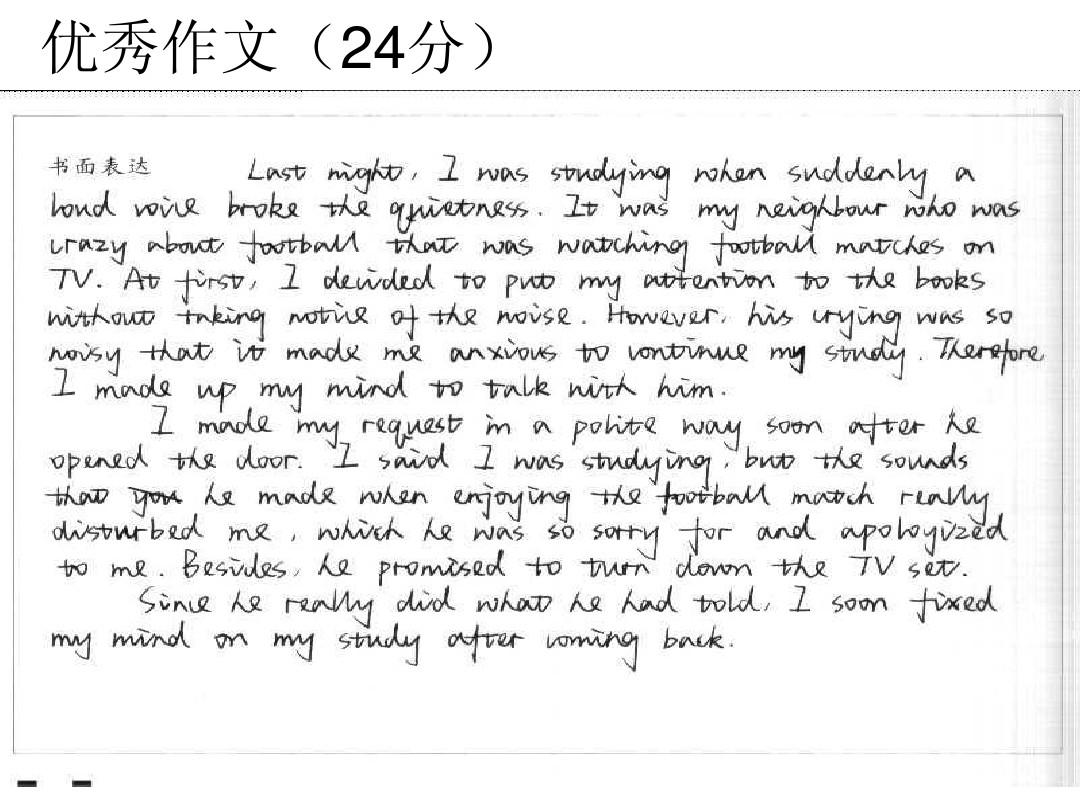 优秀作文（24分）
书面表达 Last night, I was studying when suddenly a
loud voice broke the quietness. It was my neighbour who was
crazy about football that was watching football matches on
TV. At first, I decided to put my attention to the books
without taking notice of the noise. However, his crying was so
noisy that it made me anxious to continue my study. Therefore
I made up my mind to talk with him.
I made my request in a polite way soon after he
opened the door. I said I was studying, but the sounds
that you he made when enjoying the football match really
disturbed me, which he was so sorry for and apologized
to me. Besides, he promised to turn down the TV set.
Since he really did what he had told, I soon fixed
my mind on my study after coming back.